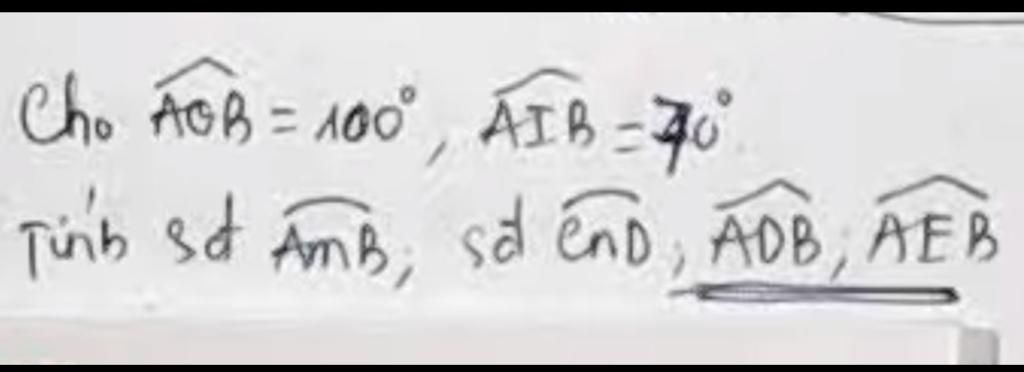 Cho AOB = 100°, AIB = 70°
Tính sđ AmB; sđ CnD; ADB; AEB